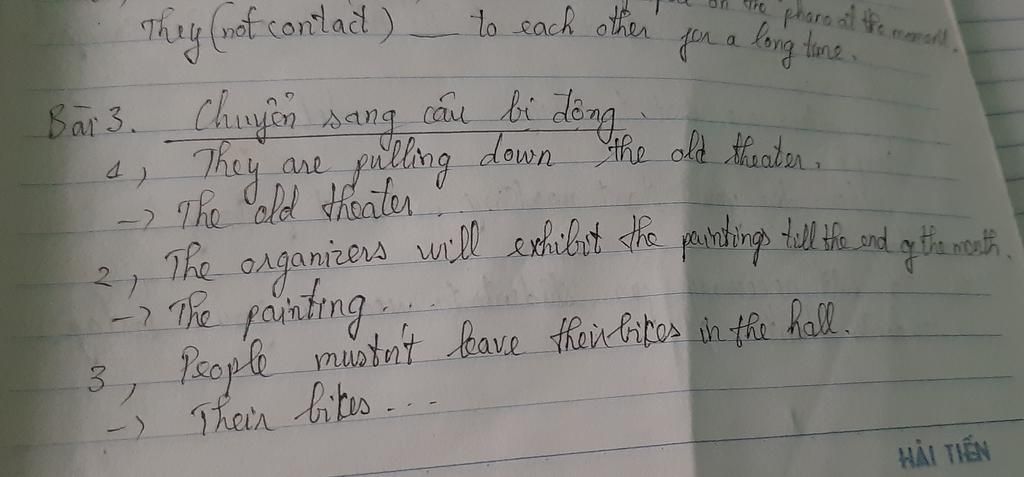 on the phone at the moment.
They (not contact) ___ to each other for a long time.
Bài 3. Chuyển sang câu bi động.
1, They are pulling down the old theater.
-> The old theater.
2, The organizers will exhibit the paintings till the end of the month.
-> The painting...
3, People mustn't leave their bikes in the hall.
-> Their bikes...
HẢI TIẾN